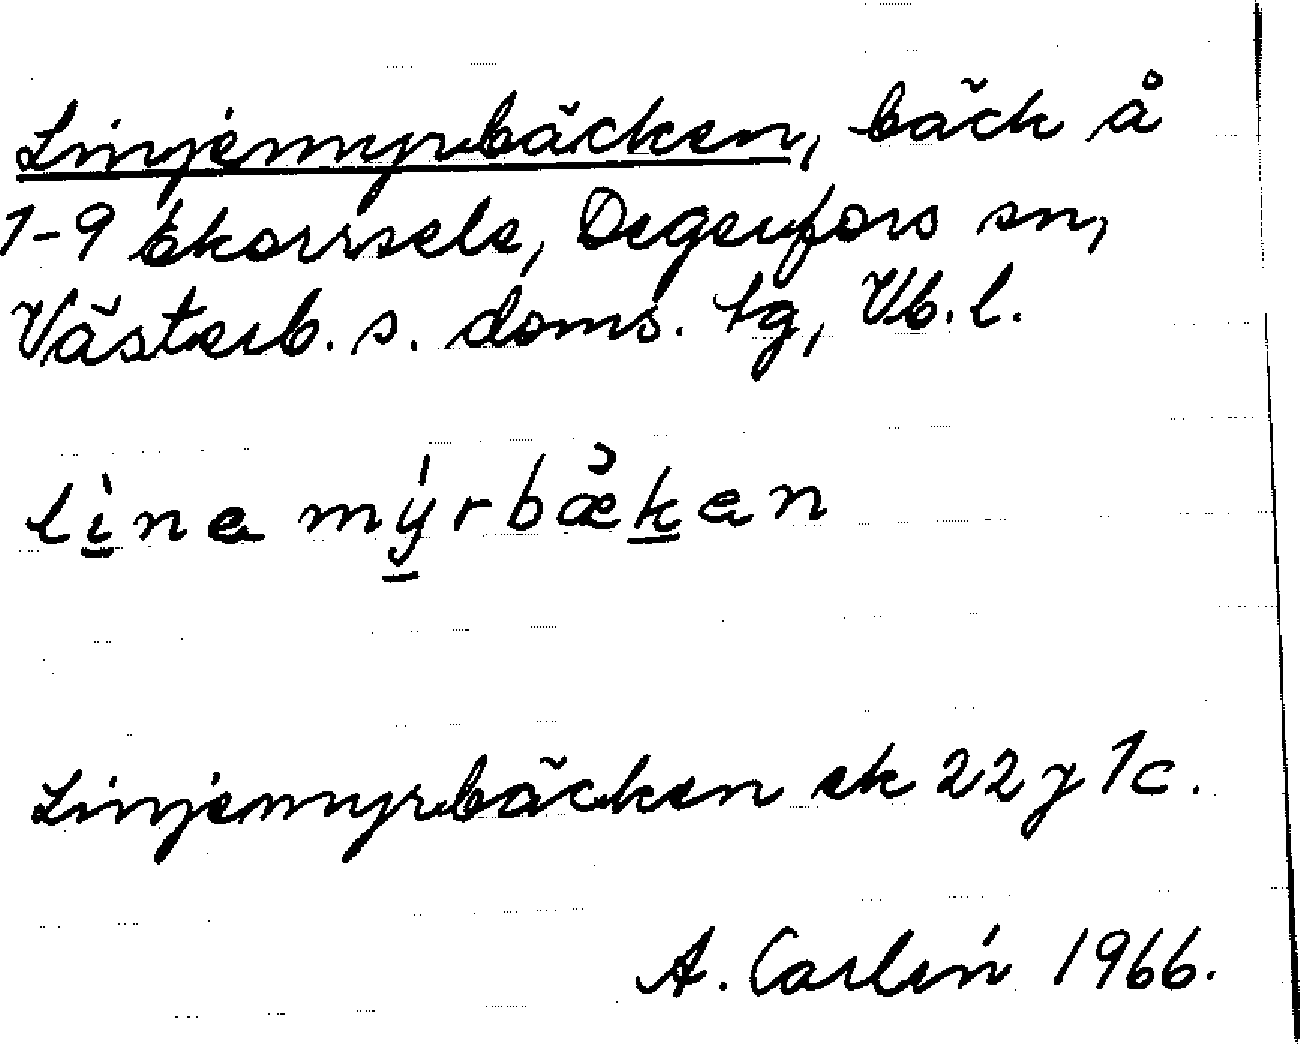 Linjemyrbäcken, bäck å
1-9 Ekorrsele, Degerfors sn,
Västerb. s. doms. tg, Vb. l.
lìne mýrbæ̀ken
Linjemyrbäcken ek 22 j 1c.
A. Carlén 1966.